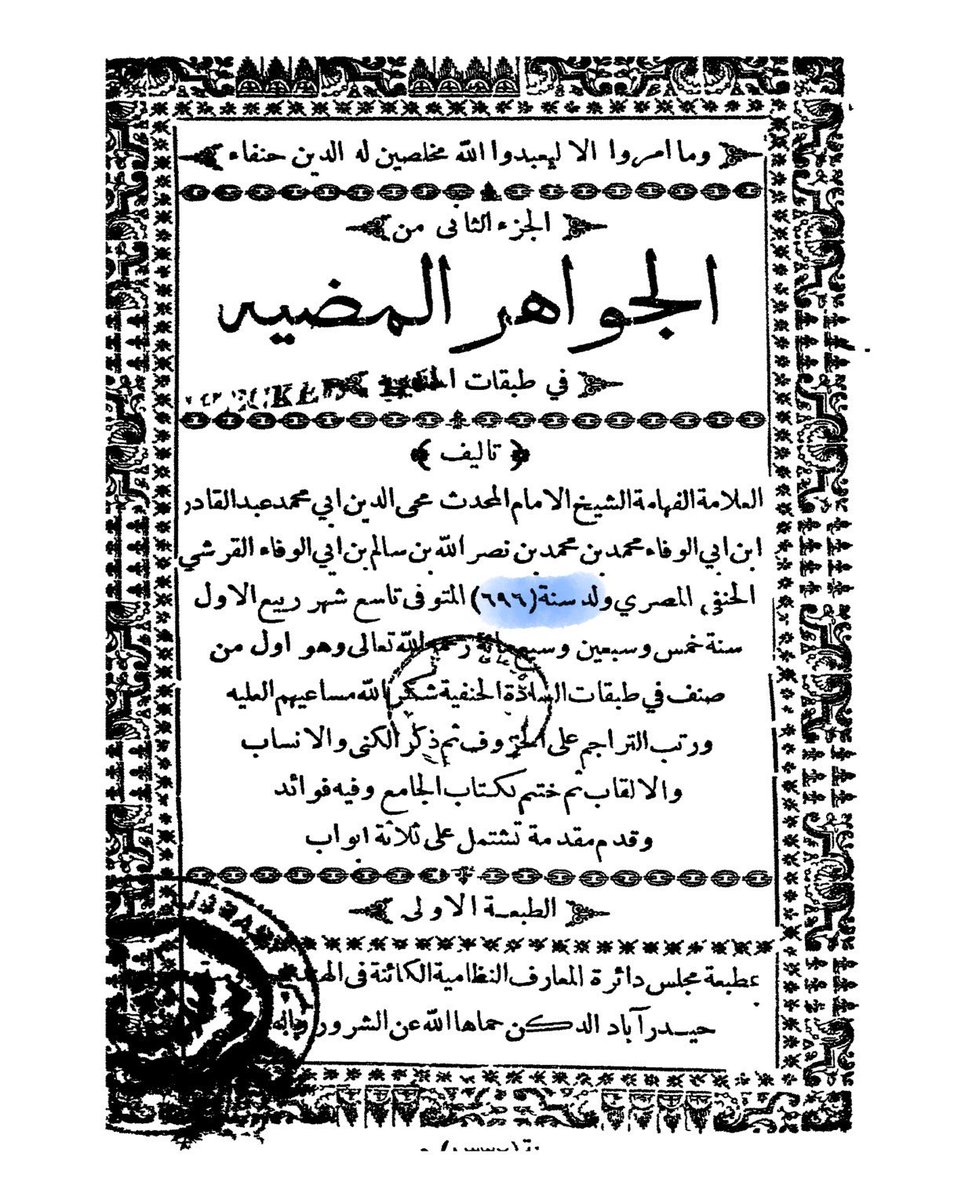 وما امروا الا ليعبدوا الله مخلصين له الدين حنفاء
الجزء الثانى من
الجواهر المضيه
في طبقات
﴿ تاليف ﴾
العلامة الفهامة الشيخ الامام المحدث محى الدين ابي محمد عبد القادر
ابن ابي الوفاء محمد بن محمد بن نصر الله بن سالم بن ابي الوفاء القرشي
الحنفي المصري ولد سنة (٦٩٦) المتوفى تاسع شهر ربيع الاول
سنة خمس وسبعين وسبع مائة رحمه الله تعالى وهو اول من
صنف في طبقات السادة الحنفية شكر الله مساعيهم العليه
ورتب التراجم على الحروف ثم ذكر الكنى والانساب
والالقاب ثم ختم بكتاب الجامع وفيه فوائد
وقدم مقدمة تشتمل على ثلاثة ابواب
الطبعة الاولى
بمطبعة مجلس دائرة المعارف النظامية الكائنة فى
حيدرآباد الدكن حماها الله عن الشرور